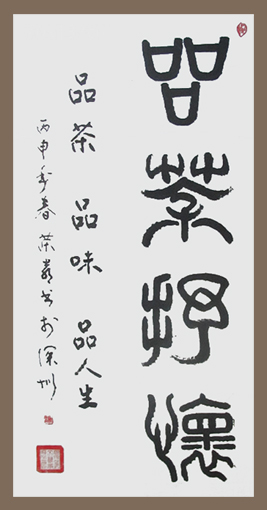 品茶抒懷
品茶 品味 品人生
丙申年春 茶嵩书於深圳